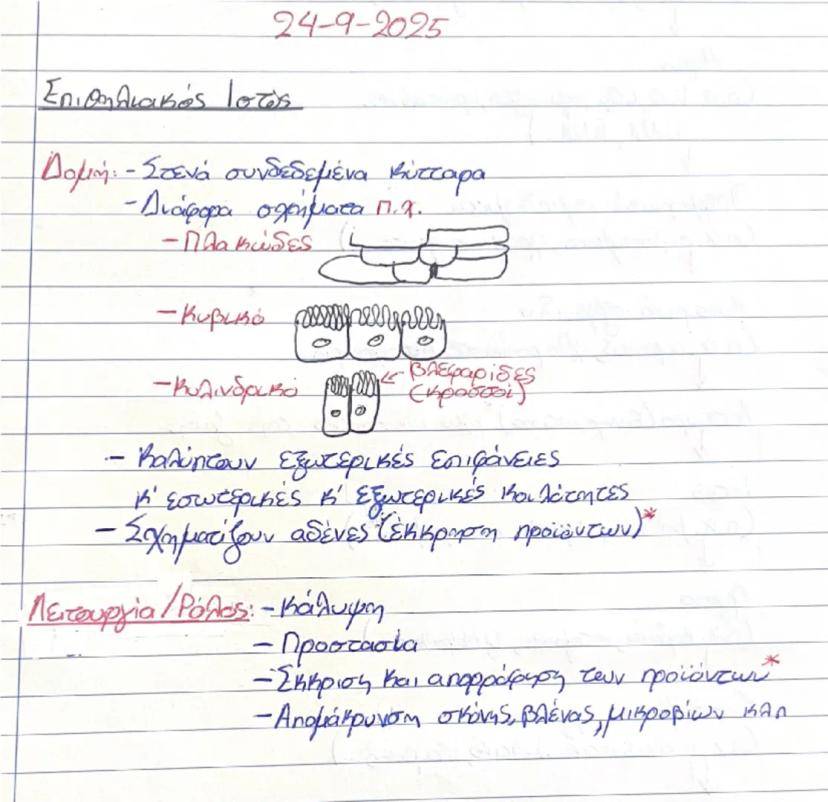 24-9-2025
Επιθηλιακός Ιστός
Δομή: - Στενά συνδεδεμένα κύτταρα
- Διάφορα σχήματα π.χ.
- Πλακώδες
- Κυβικό
- Κυλινδρικό ← βλεφαρίδες
(κροσσοί)
- Καλύπτουν εξωτερικές επιφάνειες
κ' εσωτερικές κ' εξωτερικές κοιλότητες
- Σχηματίζουν αδένες (έκκρηση προϊόντων)*
Λειτουργία/Ρόλος: - Κάλυψη
- Προστασία
- Έκκριση και απορρόφηση των προϊόντων*
- Απομάκρυνση σκόνης, βλένας, μικροβίων κλπ